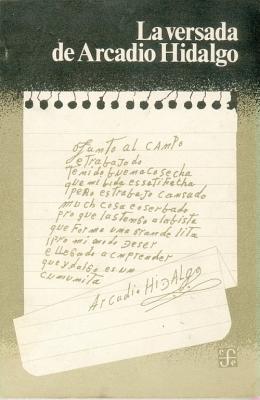 La versada
de Arcadio Hidalgo
o Junto al CAMPO
e trabajado
tenido buena cosecha
que mi bida es satisfecha
pero es trabajo cansado
much cosa e oserbado
pro que las tengo a la bista
que forma una grande lita
i pro mi modo de ser
e llegado a cmprender
que ydalgo es un
cumunita
Arcadio HIDALgO
fce